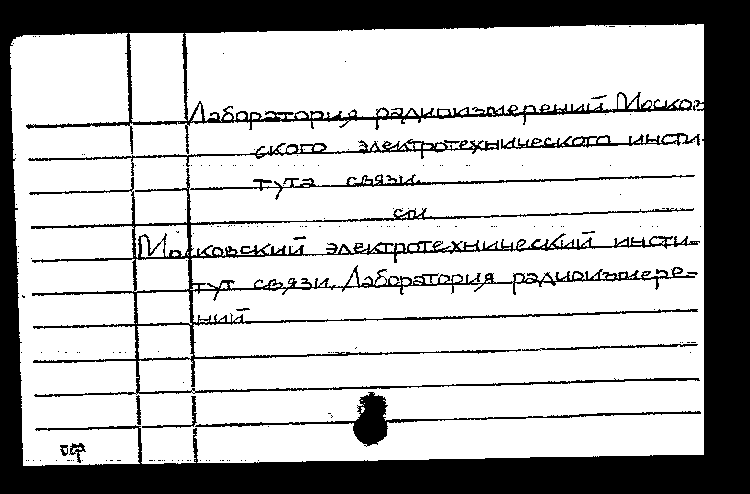 Лаборатория радиоизмерений Москов-
ского электротехнического инсти-
тута связи
см
Московский электротехнический инсти-
тут связи. Лаборатория радиоизмере-
ний